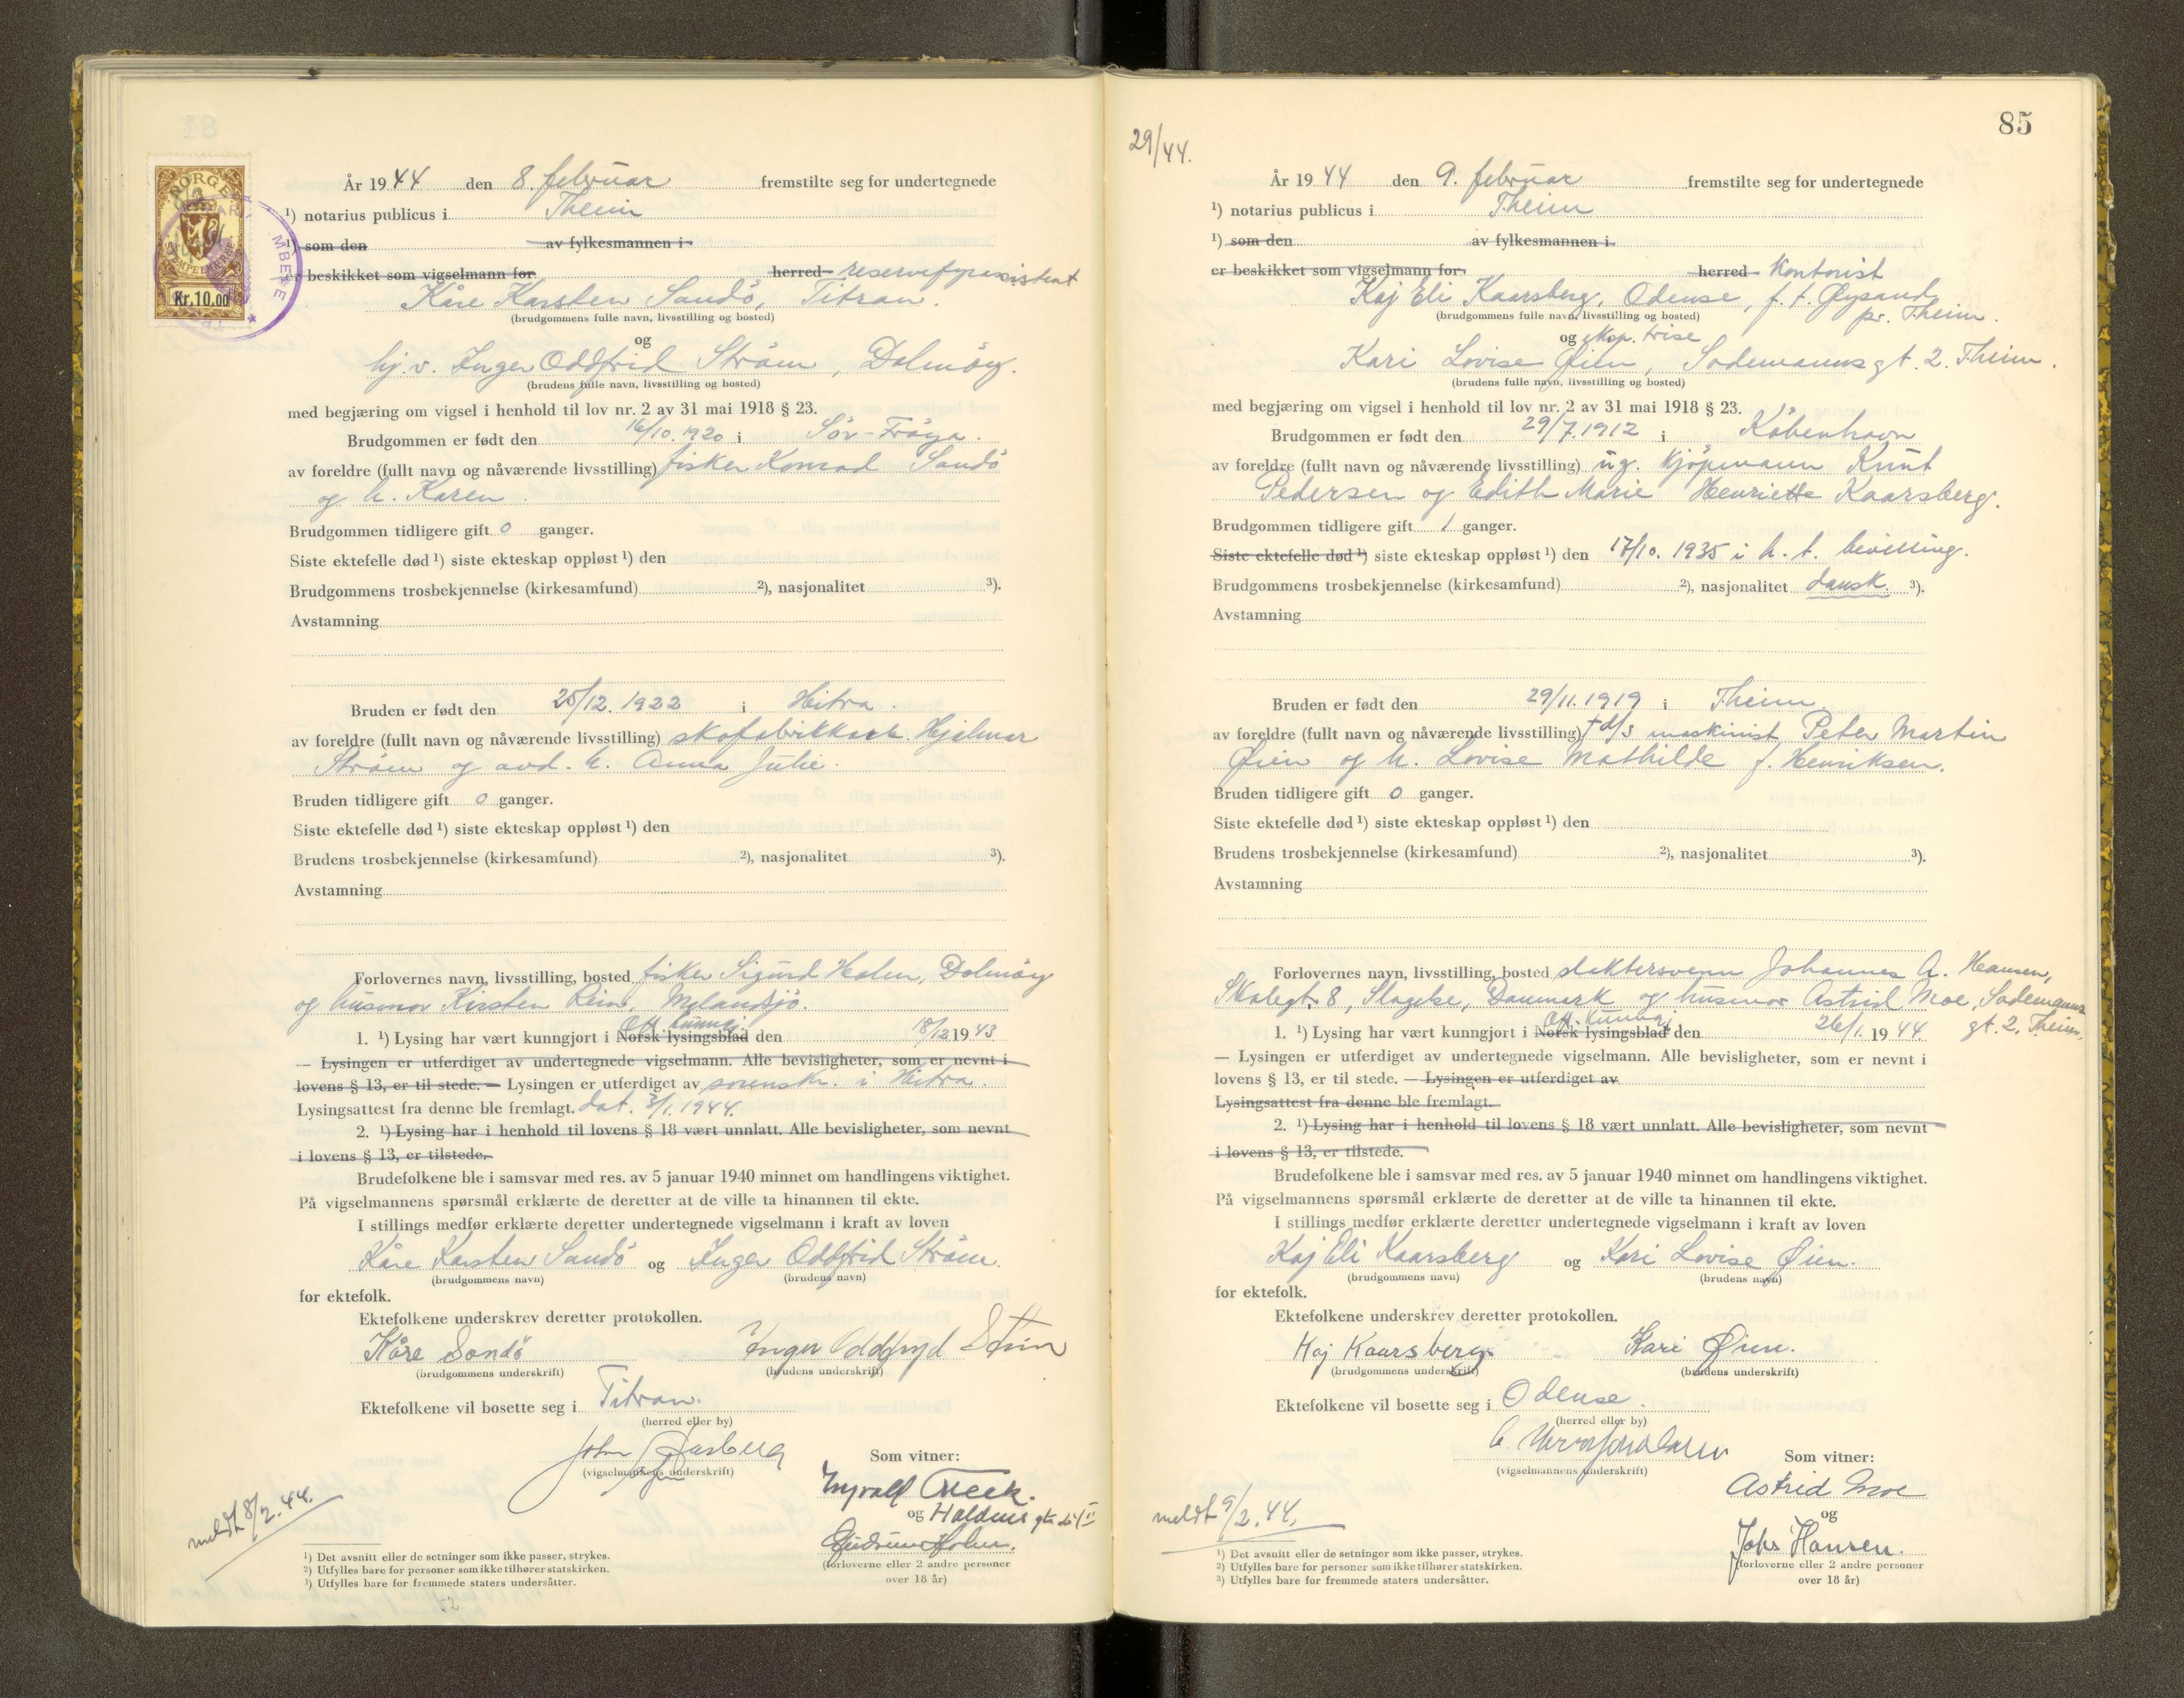 NORGE
STEMPELMERKE
Kr.10.00
År 1944 den 8. februar fremstilte seg for undertegnede
¹) notarius publicus i Theim
¹) som den av fylkesmannen i
er beskikket som vigselmann for herred reservefyrassistent
Kåre Karsten Sandö, Titran.
(brudgommens fulle navn, livsstilling og bosted)
og
hj.v. Inger Oddfrid Ström, Dolmöy.
(brudens fulle navn, livsstilling og bosted)
med begjæring om vigsel i henhold til lov nr. 2 av 31 mai 1918 § 23.
Brudgommen er født den 16/10. 1920 i Sör-Fröya.
av foreldre (fullt navn og nåværende livsstilling) fisker Konrad Sandö
og h. Karen.
Brudgommen tidligere gift 0 ganger.
Siste ektefelle død ¹) siste ekteskap oppløst ¹) den
Brudgommens trosbekjennelse (kirkesamfund) ²), nasjonalitet ³).
Avstamning
Bruden er født den 25/12. 1922 i Hitra.
av foreldre (fullt navn og nåværende livsstilling) skofabrikkarb. Hjalmar
Ström og avd. h. Anna Julie.
Bruden tidligere gift 0 ganger.
Siste ektefelle død ¹) siste ekteskap oppløst ¹) den
Brudens trosbekjennelse (kirkesamfund) ²), nasjonalitet ³).
Avstamning
Forlovernes navn, livsstilling, bosted fisker Sigurd Holm, Dolmöy
og husmor Kirsten Reim, Melandsjö.
Off. kunngj.
1. ¹) Lysing har vært kunngjort i Norsk lysingsblad den 18/12 1943
— Lysingen er utferdiget av undertegnede vigselmann. Alle bevisligheter, som er nevnt i
lovens § 13, er til stede. — Lysingen er utferdiget av sorenskr. i Hitra.
Lysingsattest fra denne ble fremlagt. dat. 3/1. 1944.
2. ¹) Lysing har i henhold til lovens § 18 vært unnlatt. Alle bevisligheter, som nevnt
i lovens § 13, er tilstede.
Brudefolkene ble i samsvar med res. av 5 januar 1940 minnet om handlingens viktighet.
På vigselmannens spørsmål erklærte de deretter at de ville ta hinannen til ekte.
I stillings medfør erklærte deretter undertegnede vigselmann i kraft av loven
Kåre Karsten Sandö og Inger Oddfrid Ström.
(brudgommens navn) (brudens navn)
for ektefolk.
Ektefolkene underskrev deretter protokollen.
Kåre Sandö Inger Oddfryd Ström
(brudgommens underskrift) (brudens underskrift)
Ektefolkene vil bosette seg i Titran.
(herred eller by)
John
(vigselmannens underskrift)
Som vitner:
og
Gudrun Holm.
(forloverne eller 2 andre personer
over 18 år)
meldt 8/2. 44.
¹) Det avsnitt eller de setninger som ikke passer, strykes.
²) Utfylles bare for personer som ikke tilhører statskirken.
³) Utfylles bare for fremmede staters undersåtter.
85
29/44.
År 1944 den 9. februar fremstilte seg for undertegnede
¹) notarius publicus i Theim
¹) som den av fylkesmannen i
er beskikket som vigselmann for herred Kontorist
Kaj Eli Kaarsberg, Odense, f. t. Øysand
pr. Theim.
(brudgommens fulle navn, livsstilling og bosted)
og eksp. trise
Kari Lovise Øien, Sodemannsgt. 2. Theim.
(brudens fulle navn, livsstilling og bosted)
med begjæring om vigsel i henhold til lov nr. 2 av 31 mai 1918 § 23.
Brudgommen er født den 29/7. 1912 i København
av foreldre (fullt navn og nåværende livsstilling) ug. kjöpmann Knut
Pedersen og Edith Marie Henriette Kaarsberg.
Brudgommen tidligere gift 1 ganger.
Siste ektefelle død ¹) siste ekteskap oppløst ¹) den 17/10. 1935 i h. t. bevilling.
Brudgommens trosbekjennelse (kirkesamfund) ²), nasjonalitet dansk. ³).
Avstamning
Bruden er født den 29/11. 1919 i Theim.
av foreldre (fullt navn og nåværende livsstilling) † d/s maskinist Peter Martin
Øien og h. Lovise Mathilde f. Henriksen.
Bruden tidligere gift 0 ganger.
Siste ektefelle død ¹) siste ekteskap oppløst ¹) den
Brudens trosbekjennelse (kirkesamfund) ²), nasjonalitet ³).
Avstamning
Forlovernes navn, livsstilling, bosted slaktersvenn Johannes A. Hansen,
Skolegt. 8, Slagelse, Danmark og husmor Astrid Moe, Sodemanns
gt. 2, Theim.
Off. kunngj.
1. ¹) Lysing har vært kunngjort i Norsk lysingsblad den 26/1. 1944.
— Lysingen er utferdiget av undertegnede vigselmann. Alle bevisligheter, som er nevnt i
lovens § 13, er til stede. — Lysingen er utferdiget av
Lysingsattest fra denne ble fremlagt.
2. ¹) Lysing har i henhold til lovens § 18 vært unnlatt. Alle bevisligheter, som nevnt
i lovens § 13, er tilstede.
Brudefolkene ble i samsvar med res. av 5 januar 1940 minnet om handlingens viktighet.
På vigselmannens spørsmål erklærte de deretter at de ville ta hinannen til ekte.
I stillings medfør erklærte deretter undertegnede vigselmann i kraft av loven
Kaj Eli Kaarsberg og Kari Lovise Øien.
(brudgommens navn) (brudens navn)
for ektefolk.
Ektefolkene underskrev deretter protokollen.
Kaj Kaarsberg. Kari Øien.
(brudgommens underskrift) (brudens underskrift)
Ektefolkene vil bosette seg i Odense.
(herred eller by)
(vigselmannens underskrift)
Som vitner:
Astrid Moe
og
Johs Hansen.
(forloverne eller 2 andre personer
over 18 år)
meldt 9/2. 44.
¹) Det avsnitt eller de setninger som ikke passer, strykes.
²) Utfylles bare for personer som ikke tilhører statskirken.
³) Utfylles bare for fremmede staters undersåtter.